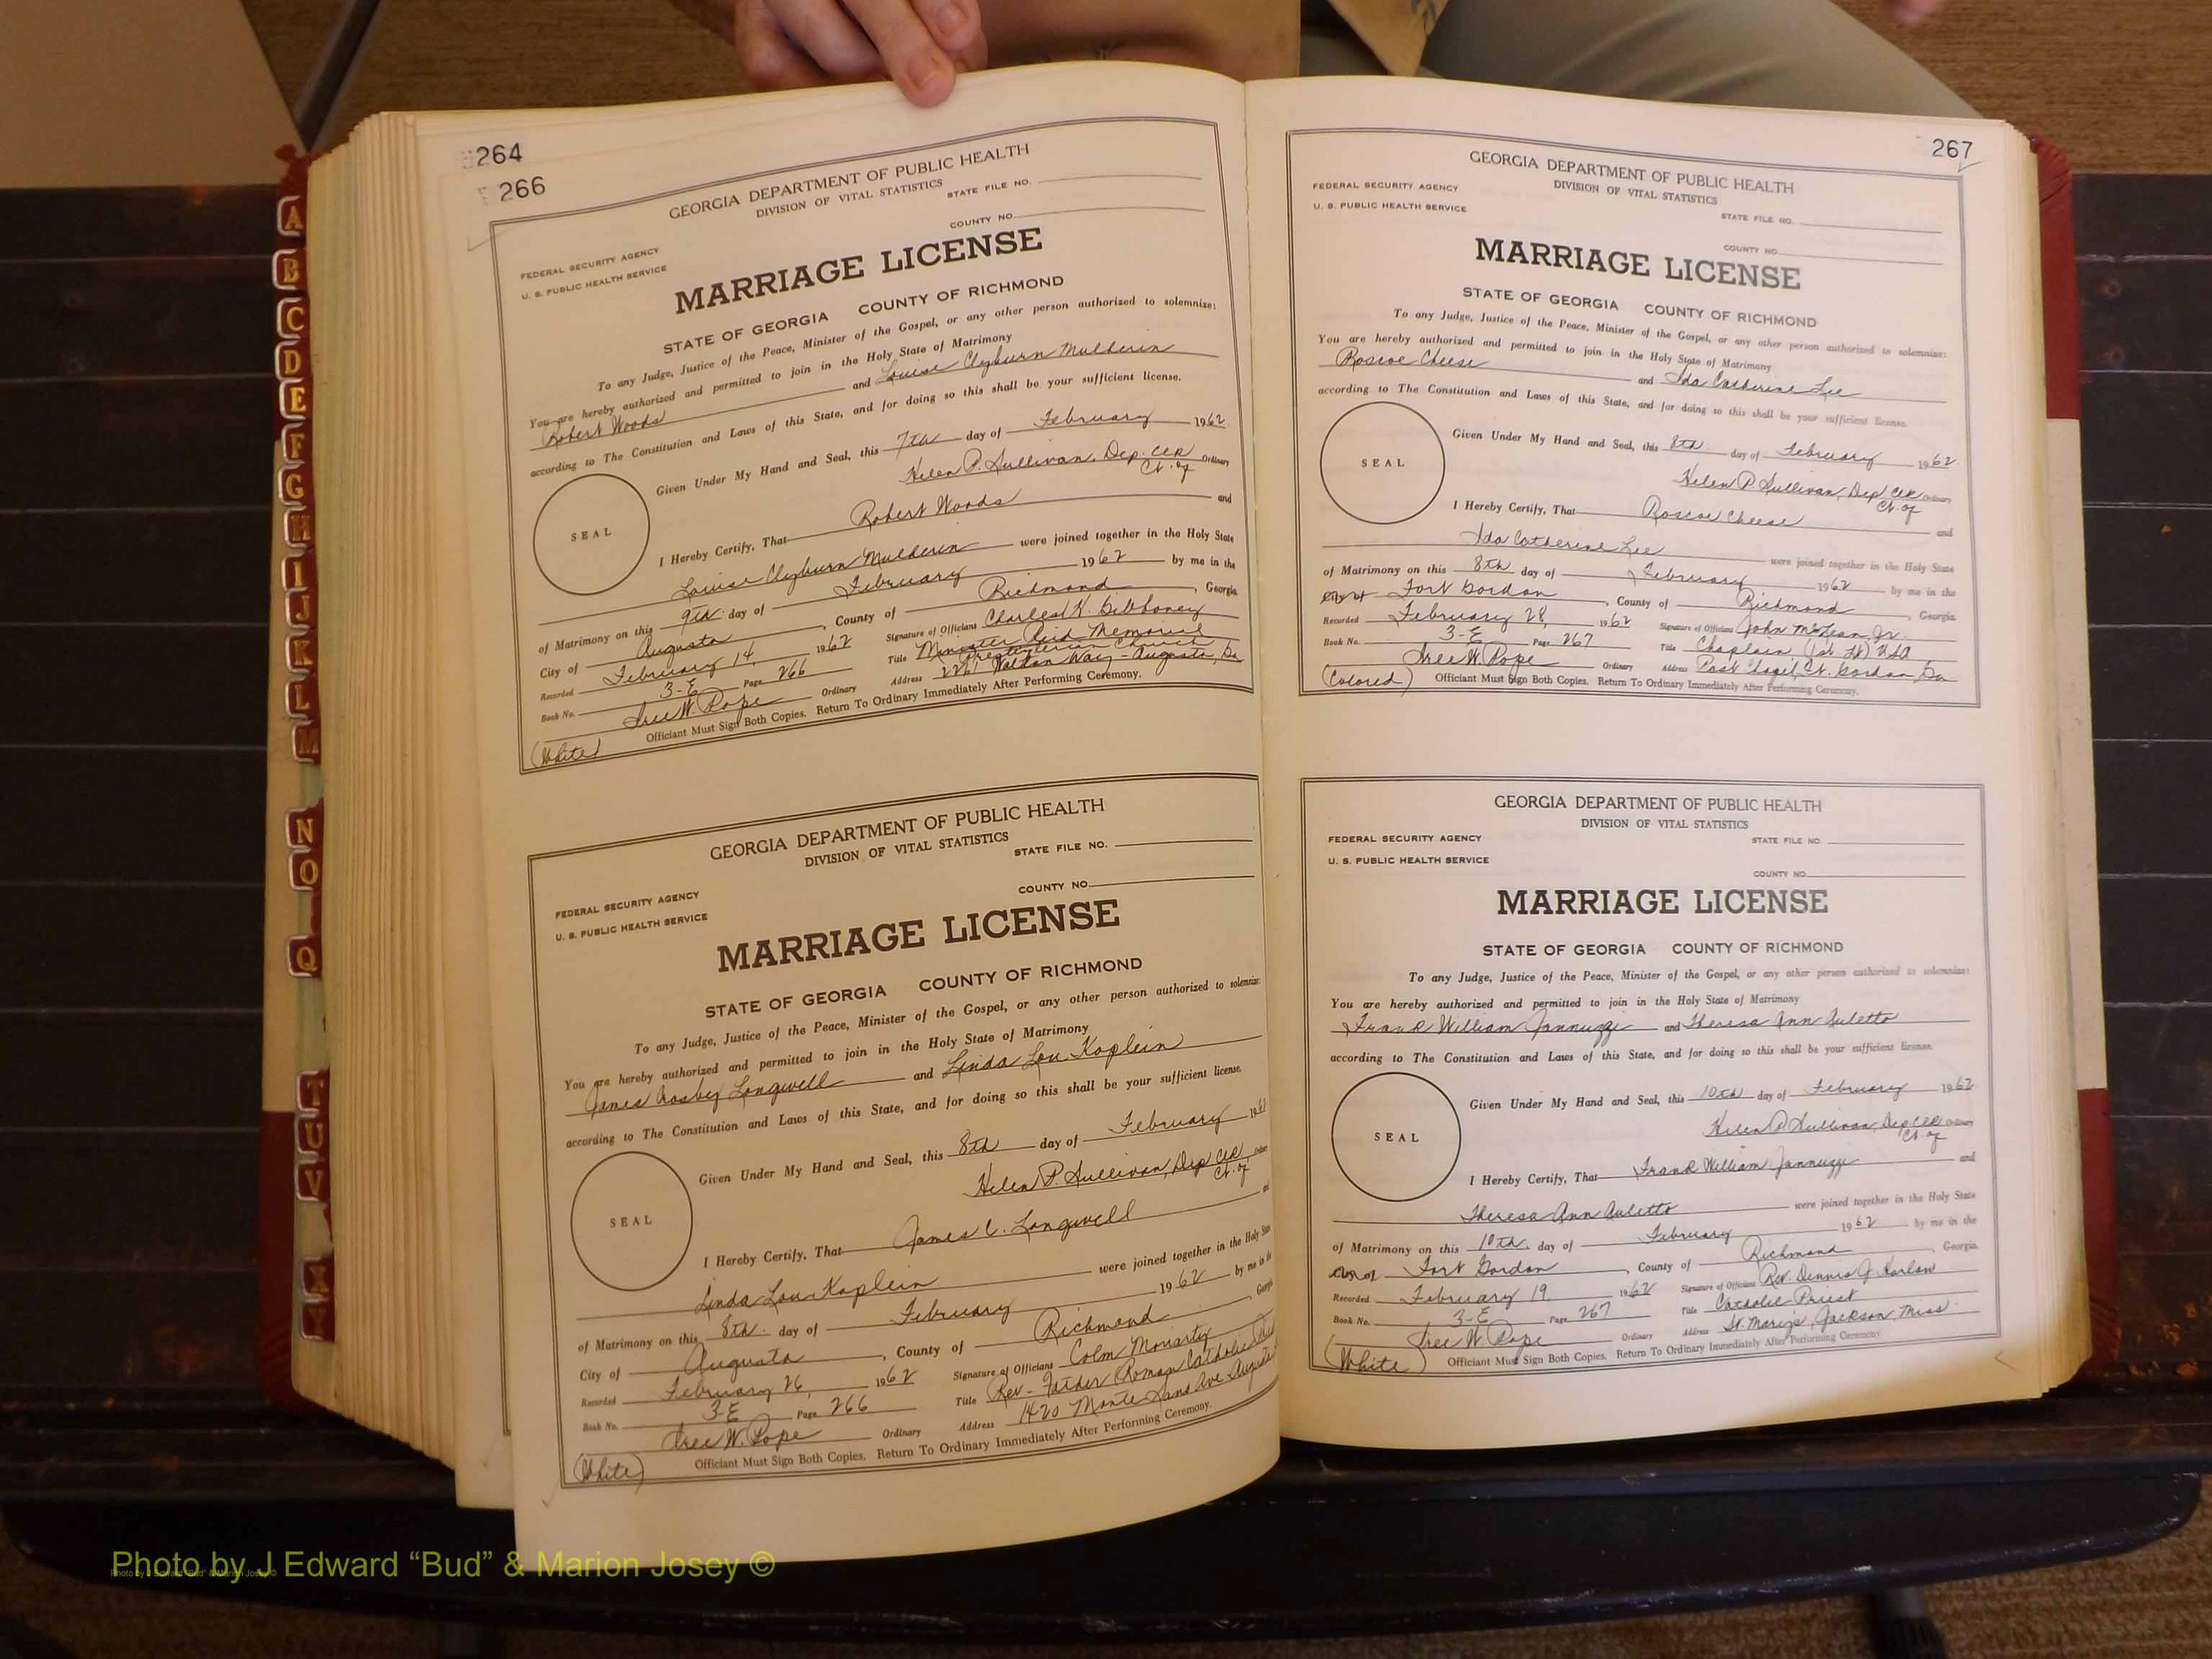 264
266
GEORGIA DEPARTMENT OF PUBLIC HEALTH
DIVISION OF VITAL STATISTICS
STATE FILE NO.
COUNTY NO.
FEDERAL SECURITY AGENCY
U. S. PUBLIC HEALTH SERVICE
MARRIAGE LICENSE
STATE OF GEORGIA COUNTY OF RICHMOND
To any Judge, Justice of the Peace, Minister of the Gospel, or any other person authorized to solemnize:
You are hereby authorized and permitted to join in the Holy State of Matrimony
Robert Woods and Louise Clyburn Mulderin
according to The Constitution and Laws of this State, and for doing so this shall be your sufficient license.
Given Under My Hand and Seal, this 7th day of February 1962
Helen P. Sullivan, Dep. Clk Ordinary
Ct. of
SEAL
I Hereby Certify, That Robert Woods and
Louise Clyburn Mulderin were joined together in the Holy State
of Matrimony on this 9th day of February 1962 by me in the
City of Augusta, County of Richmond, Georgia
Recorded February 14, 1962 Signature of Officiant Charles K. Gibboney
Book No. 3-E Page 266 Title Minister Reid Memorial
Presbyterian Church
Tree W. Pope Ordinary Address 2261 Walton Way - Augusta, Ga
Officiant Must Sign Both Copies. Return To Ordinary Immediately After Performing Ceremony.
(White)
GEORGIA DEPARTMENT OF PUBLIC HEALTH
DIVISION OF VITAL STATISTICS
STATE FILE NO.
COUNTY NO.
FEDERAL SECURITY AGENCY
U. S. PUBLIC HEALTH SERVICE
MARRIAGE LICENSE
STATE OF GEORGIA COUNTY OF RICHMOND
To any Judge, Justice of the Peace, Minister of the Gospel, or any other person authorized to solemnize:
You are hereby authorized and permitted to join in the Holy State of Matrimony
James Crosby Longwell and Linda Lou Koplein
according to The Constitution and Laws of this State, and for doing so this shall be your sufficient license.
Given Under My Hand and Seal, this 8th day of February 196
Helen P. Sullivan, Dep Clk Ordinary
Ct. of
SEAL
I Hereby Certify, That James C. Longwell
Linda Lou Koplein were joined together in the Holy State
of Matrimony on this 8th day of February 1962 by me in the
City of Augusta, County of Richmond, Georgia
Recorded February 26, 1962 Signature of Officiant Colm Moriarty
Book No. 3-E Page 266 Title Rev - Father Roman Catholic
Tree W. Pope Ordinary Address 1420 Monte Sano Ave Augusta
Officiant Must Sign Both Copies. Return To Ordinary Immediately After Performing Ceremony.
(White)
267
GEORGIA DEPARTMENT OF PUBLIC HEALTH
DIVISION OF VITAL STATISTICS
FEDERAL SECURITY AGENCY
U. S. PUBLIC HEALTH SERVICE
STATE FILE NO.
COUNTY NO.
MARRIAGE LICENSE
STATE OF GEORGIA COUNTY OF RICHMOND
To any Judge, Justice of the Peace, Minister of the Gospel, or any other person authorized to solemnize:
You are hereby authorized and permitted to join in the Holy State of Matrimony
Roscoe Cheese and Ida Catherine Lee
according to The Constitution and Laws of this State, and for doing so this shall be your sufficient license.
Given Under My Hand and Seal, this 8th day of February 1962
Helen P. Sullivan, Dep Clk Ordinary
Ct. of
SEAL
I Hereby Certify, That Roscoe Cheese and
Ida Catherine Lee were joined together in the Holy State
of Matrimony on this 8th day of February 1962 by me in the
City of Fort Gordon, County of Richmond, Georgia
Recorded February 28, 1962 Signature of Officiant John McLean, Jr.
Book No. 3-E Page 267 Title Chaplain (1st Lt) USA
Tree W. Pope Ordinary Address Post Chapel, Ft. Gordon, Ga
(Colored) Officiant Must Sign Both Copies. Return To Ordinary Immediately After Performing Ceremony.
GEORGIA DEPARTMENT OF PUBLIC HEALTH
DIVISION OF VITAL STATISTICS
FEDERAL SECURITY AGENCY
STATE FILE NO.
U. S. PUBLIC HEALTH SERVICE
COUNTY NO.
MARRIAGE LICENSE
STATE OF GEORGIA COUNTY OF RICHMOND
To any Judge, Justice of the Peace, Minister of the Gospel, or any other person authorized to solemnize:
You are hereby authorized and permitted to join in the Holy State of Matrimony
Frank William Jannuzzi and Theresa Ann Auletto
according to The Constitution and Laws of this State, and for doing so this shall be your sufficient license.
Given Under My Hand and Seal, this 10th day of February 1962
Helen P. Sullivan, Dep Clk Ordinary
Ct. of
SEAL
I Hereby Certify, That Frank William Jannuzzi and
Theresa Ann Auletto were joined together in the Holy State
of Matrimony on this 10th. day of February 1962 by me in the
City of Fort Gordon, County of Richmond, Georgia
Recorded February 19, 1962 Signature of Officiant Rev. Dennis J. Harlow
Book No. 3-E Page 267 Title Catholic Priest
Tree W. Pope Ordinary Address St. Mary's, Jackson, Miss.
(White) Officiant Must Sign Both Copies. Return To Ordinary Immediately After Performing Ceremony
A
B
C
D
E
F
G
H
I
J
K
L
M
N
O
Q
T
U
V
X
Y
Photo by J Edward “Bud” & Marion Josey ©
Photo by J Edward “Bud” & Marion Josey ©